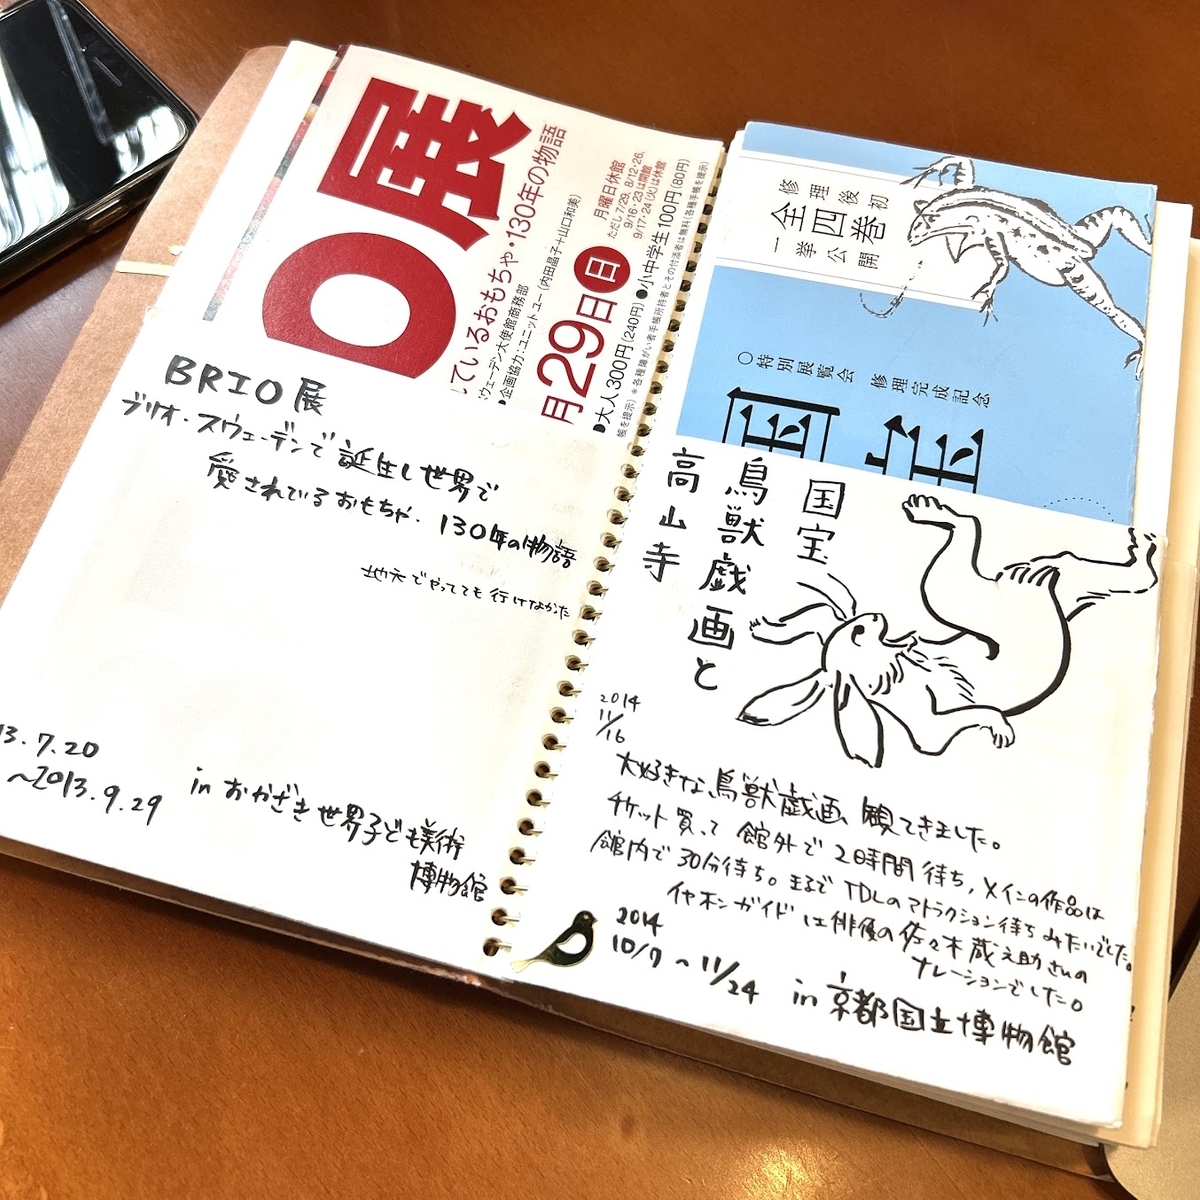 O展
ているおもちゃ・130年の物語
ウェーデン大使館商務部
●企画協力:ユニットユー(内田晶子+山口和美)
月29日日
月曜日休館
ただし7/29、8/12・26、
9/16・23は開館
9/17・24(火)は休館
●大人300円(240円)●小中学生100円(80円)
帳を提示)※各種障がい者手帳所持者とその付添者は無料(各種手帳を提示)
BRIO展
ブリオ・スウェーデンで誕生し世界で
愛されているおもちゃ・130年の物語
地元でやってても行けなかた
13.7.20
～2013.9.29
in おかざき世界子ども美術
博物館
修理後初
全四巻
一挙公開
○特別展覧会 修理完成記念
国宝
国宝
鳥獣戯画と
高山寺
2014
11/16
大好きな鳥獣戯画 観てきました。
チケット買って 館外で2時間待ち、メインの作品は
館内で30分待ち。まるでTDLのアトラクション待ちみたいでした。
イヤホンガイドは俳優の佐々木蔵之助さんの
ナレーションでした。
2014
10/7～11/24 in 京都国立博物館